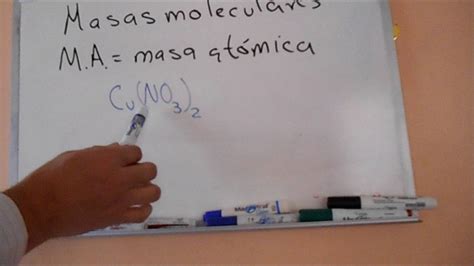 Masas moleculares
M.A. = masa atómica
Cu(NO₃)₂